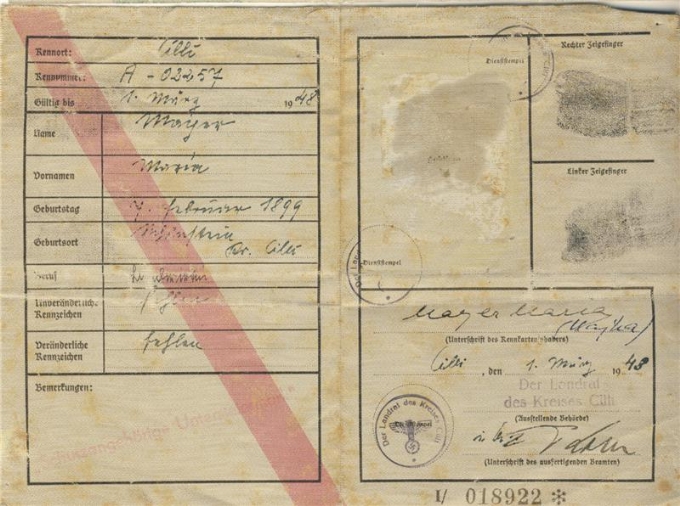 Kennort: Cilli
Kennummer: A-02257
Gültig bis 1. März 1948
Name Mayer
Vornamen Maria
Geburtstag 7. Februar 1899
Geburtsort
Kr. Cilli
Beruf
Unveränderliche Kennzeichen fehlen
Veränderliche Kennzeichen fehlen
Bemerkungen:
Dienststempel
Dienststempel
Rechter Zeigefinger
Linker Zeigefinger
Mayer Maria
(Unterschrift des Kennkarteninhabers)
Cilli, den 1. März 1943
Der Landrat
des Kreises Cilli
(Ausstellende Behörde)
Der Landrat des Kreises Cilli
(Unterschrift des ausfertigenden Beamten)
I/ 018922 *